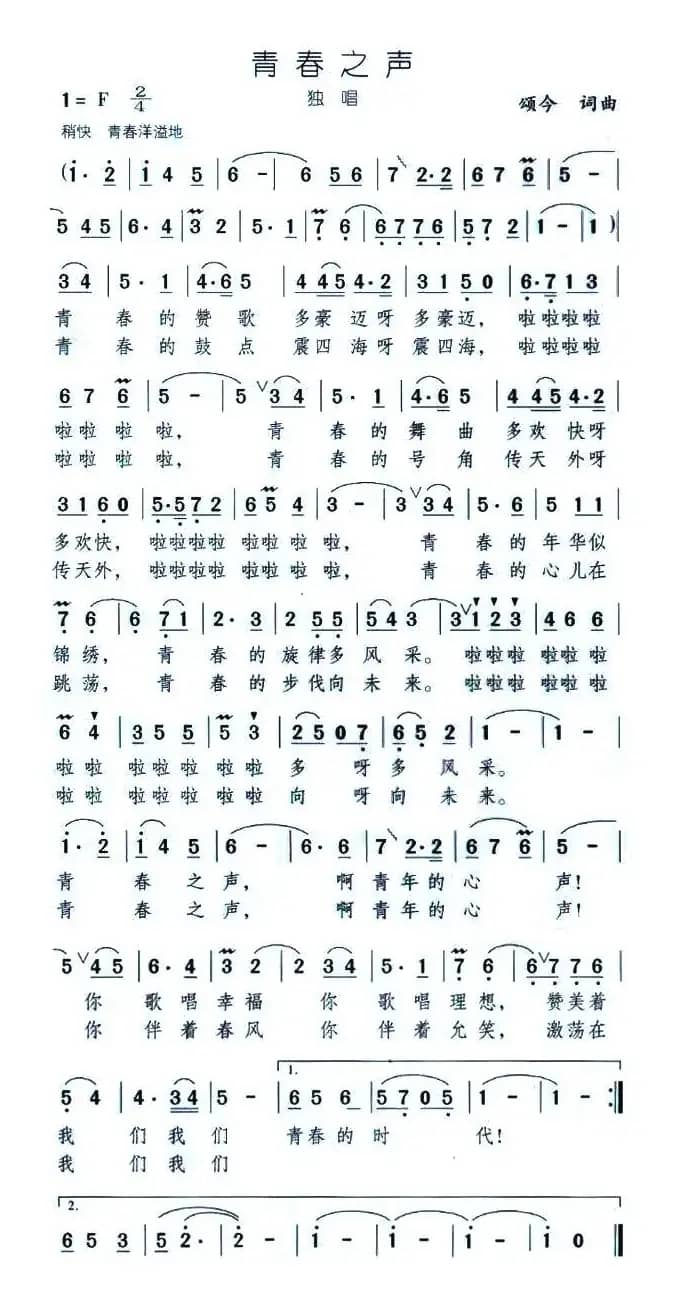 青春之声
1= F 2/4
独唱
颂今 词曲
稍快 青春洋溢地
(i· 2 | i 4 5 | 6 - | 6 5 6 | 7 2·2 | 6 7 6 | 5 - |
5 4 5 | 6· 4 | 3 2 | 5· 1 | 7 6 | 6 7 7 6 | 5 7 2 | 1 - | 1 )|
3 4 | 5· 1 | 4·6 5 | 4 4 5 4·2 | 3 1 5 0 | 6·7 1 3 |
青 春 的 赞 歌 多豪 迈呀 多豪迈, 啦啦啦啦
青 春 的 鼓 点 震四 海呀 震四海, 啦啦啦啦
6 7 6 | 5 - | 5 ∨ 3 4 | 5· 1 | 4·6 5 | 4 4 5 4·2 |
啦啦 啦 啦, 青 春 的 舞 曲 多欢 快呀
啦啦 啦 啦, 青 春 的 号 角 传天 外呀
3 1 6 0 | 5·5 7 2 | 6 5 4 | 3 - | 3 ∨ 3 4 | 5· 6 | 5 1 1 |
多欢快, 啦啦啦啦 啦啦 啦 啦, 青 春 的 年 华似
传天外, 啦啦啦啦 啦啦 啦 啦, 青 春 的 心 儿在
7 6 | 6 7 1 | 2· 3 | 2 5 5 | 5 4 3 | 3 ∨ 1 2 3 | 4 6 6 |
锦绣, 青 春 的 旋 律多 风 采。 啦啦啦 啦啦 啦
跳荡, 青 春 的 步 伐向 未 来。 啦啦啦 啦啦 啦
6 4 | 3 5 5 5 | 5 3 | 2 5 0 7 | 6 5 2 | 1 - | 1 - |
啦 啦 啦啦 啦 啦 啦 多 呀 多 风 采。
啦 啦 啦啦 啦 啦 啦 向 呀 向 未 来。
i· 2 | i 4 5 | 6 - | 6· 6 | 7 2·2 | 6 7 6 | 5 - |
青 春 之 声, 啊 青 年 的 心 声!
青 春 之 声, 啊 青 年 的 心 声!
5 ∨ 4 5 | 6· 4 | 3 2 | 2 3 4 | 5· 1 | 7 6 | 6 ∨ 7 7 6 |
你 歌 唱 幸 福 你 歌 唱 理 想, 赞美着
你 伴 着 春 风 你 伴 着 允 笑, 激荡在
1.
5 4 | 4· 3 4 | 5 - | 6 5 6 | 5 7 0 5 | 1 - | 1 - :||
我 们 我 们 青春 的 时 代!
我 们 我 们
2.
6 5 3 | 5 2· | 2 - | i - | i - | i - | i 0 ||